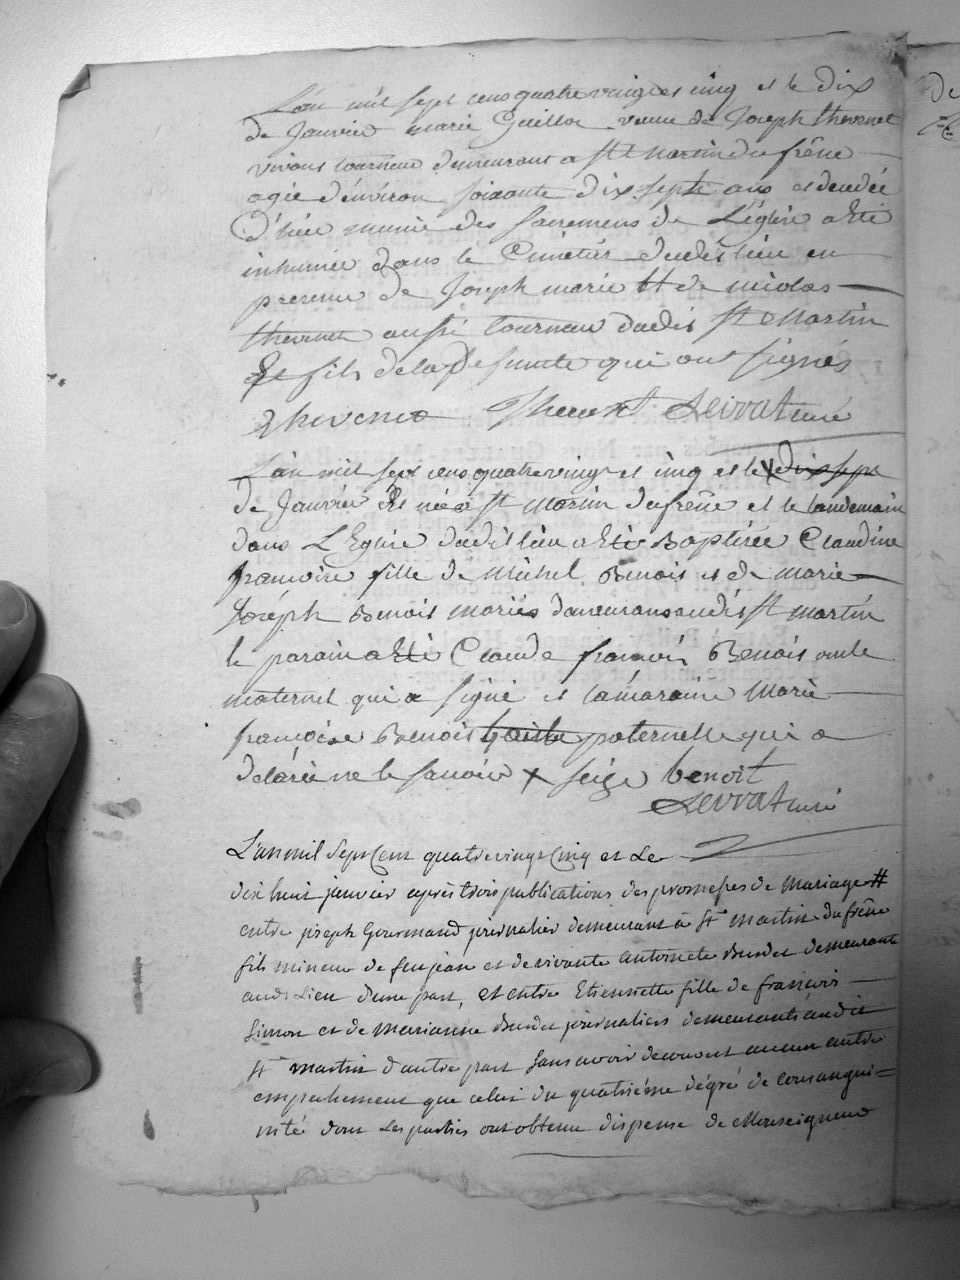 L'an mil sept cens quatre vingt et cinq et le dix
de Janvier marie Guillot veuve de Joseph thevenet
vivant tourneur demeurant a St Martin du frêne
agée d'environ soixante dix sept ans est decedée
munie des sacremens de L'église a Eté
inhumée dans le Cimetier dudit lieu en
presence de Joseph marie et de nicolas
thevenet aussi tourneur dudit St Martin
Et fils de la defunte qui ont signés
Thevenet Thevenet Levrat curé
L'an mil sept cens quatre vingt et cinq et le x dix sept
de Janvier Est née a St Martin du frêne et le landemain
dans L'Eglise dudit lieu a Eté Baptisée Claudine
francoise fille de Michel Benoit et de marie
Joséph Benoit mariés demeurans audit St martin
le parain a Eté Claude francois Benoit oncle
maternel qui a signé et la maraine Marie
francoise Benoit tante paternelle qui a
déclarée ne le savoir x seize benoit
Levrat curé
L'an mil sept Cent quatre vingt Cinq et Le
dix huit janvier après trois publications des promesses de Mariage #
entre joseph Gourmand journalier demeurant à St martin du frêne
fils mineur de feu jean et de vivante antoinete Burdet demeurante
audt Lieu d'une part, et entre Etiennette fille de francois
Simon et de marianne Burdet journaliers demeurants audit
St martin d'autre part sans avoir decouvert aucun autre
empechement que celui du quatrième dégré de consangui=
nité dont Les parties ont obtenu dispense de Monseigneur